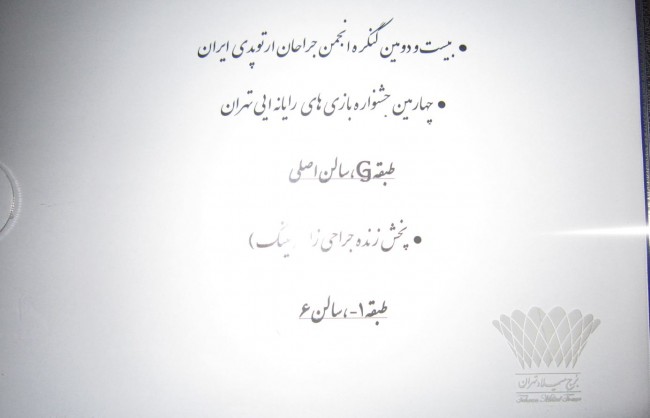 • بیست و دومین کنگره انجمن جراحان ارتوپدی ایران
• چهارمین جشنواره بازی های رایانه ایی تهران
طبقه G، سالن اصلی
• پخش زنده جراحی
طبقه ۱-، سالن ۶
برج میلاد تهران
Tehran Milad Tower